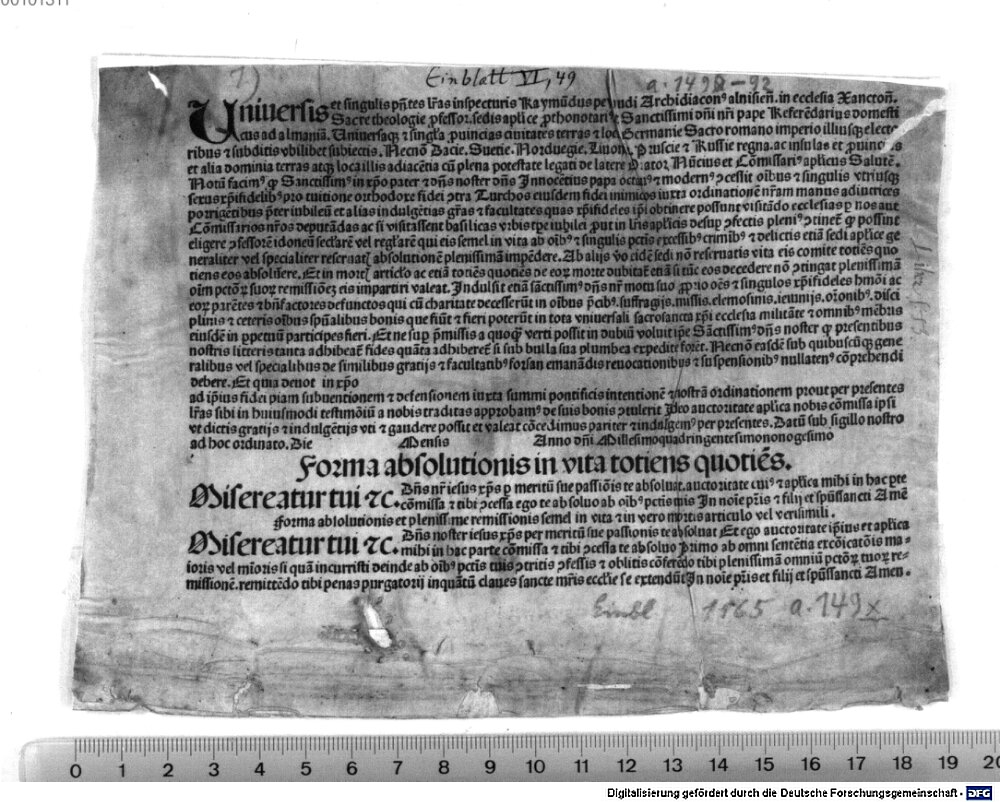 00101311
1)
Einblatt VI, 49
a. 1498-92
Uniuersis et singulis pñtes lr̃as inspecturis Raymũdus pe udi Archidiacon⁹ alnisień. in ecclesia Xanctoń.
Sacre theologie ꝓfessor. sedis aplice ꝓthonotari⁹ et Sanctissimi dñi nr̃i pape Referẽdarius domesti
cus ad almaniã. Uniuersaqꝫ ⁊ singl̃a ꝓuincias ciuitates terras et loc Germanie Sacro romano imperio illiusqꝫ electo
ribus ⁊ subditis vbilibet subiectis. Necnõ Dacie. Suetie. Norduegie. Liuonie Pruscie ⁊ Russie regna. ac insulas et ꝓuincias
et alia dominia terras atqꝫ loca illis adiacẽtia cũ plena potestate legati de latere Orator Nũcius et Cõmissari⁹ aplicus Salutẽ.
Notũ facim⁹ ꝙ Sanctissim⁹ in xp̃o pater ⁊ dñs noster dñs Innocẽtius papa octau⁹ ⁊ modern⁹ ꝯcessit oĩbus ⁊ singulis vtriusqꝫ
sexus xp̃ifidelib⁹ pro tuitione orthodoxe fidei ꝯtra Turchos eiusdem fidei inimicos iuxta ordinationẽ nr̃am manus adiutrices
porrigẽtibus p̃ter iubileũ et alias indulgẽtias gr̃as ⁊ facultates quas xp̃ifideles ip̃i obtinere possunt visitãdo ecclesias ꝑ nos aut
Cõmissarios nr̃os deputãdas ac si visitassent basilicas vrbis tp̃e iubilei ꝓut in lr̃is aplicis desuꝑ ꝯfectis pleni⁹ ꝯtinet̃ ꝙ possint
eligere ꝯfessorẽ idoneũ secl̃arẽ vel regl̃arẽ qui eis semel in vita ab oĩb⁹ ⁊ singulis pctis excessib⁹ crimĩb⁹ ⁊ delictis etiã sedi aplice ge
neraliter vel specialiter reseruat absolutionẽ plenissimã impẽdere. Ab alijs vo eidẽ sedi nõ reseruatis vita eis comite totiẽs quo
tiens eos absoluere. Et in mort articl̃o ac etiã totiẽs quotiẽs de eoꝝ morte dubitat̃ etiã si tũc eos decedere nõ ꝯtingat plenissimã
oĩm pctõꝝ suoꝝ remissionẽ eis impartiri valeat. Indulsit etiã sãctissim⁹ dñs nr̃ motu suo ꝓprio oẽs ⁊ singulos xp̃ifideles hmõi ac
eoꝝ parẽtes ⁊ bñfactores defunctos qui cũ charitate decesserũt in oĩbus p̃cib⁹. suffragijs. missis. elemosinis. ieiunijs. or̃onib⁹. disci
plinis ⁊ ceteris oĩbus spũalibus bonis que fiũt ⁊ fieri poterũt in tota vniuersali sacrosancta xp̃i ecclesia militãte ⁊ omnib⁹ mẽbris
eiusdẽ in ꝑpetuũ participes fieri. Et ne suꝑ p̃missis a quoqꝫ verti possit in dubiũ voluit ip̃e Sãctissim⁹ dñs noster ꝙ presentibus
nostris litteris tanta adhibeat̃ fides quãta adhiberet̃ si sub bulla sua plumbea expedite foret̃. Necnõ easdẽ sub quibuscũqꝫ gene
ralibus vel specialibus de similibus gratijs ⁊ facultatib⁹ forsan emanãdis reuocationibus ⁊ suspensionib⁹ nullaten⁹ cõprehendi
debere. Et quia deuot in xp̃o
ad ip̃ius fidei piam subuentionem ⁊ defensionem iuxta summi pontificis intentionẽ ⁊ nostrã ordinationem prout per presentes
lr̃as sibi in huiusmodi testimõiũ a nobis traditas approbam⁹ de suis bonis ꝯtulerit Ideo auctoritate aplica nobis cõmissa ipsi
vt dictis gratijs ⁊ indulgẽtijs vti ⁊ gaudere possit et valeat cõcedimus pariter ⁊ indulgem⁹ per presentes. Datũ sub sigillo nostro
ad hoc ordinato. Die Mensis Anno dñi Millesimoquadringentesimononogesimo
Forma absolutionis in vita totiens quotiẽs.
Misereatur tui ⁊c. Dñs nr̃ iesus xp̃s ꝑ meritũ sue passiõis te absoluat. auctoritate cui⁹ ⁊ aplica mihi in hac pte
cõmissa ⁊ tibi ꝯcessa ego te absoluo ab oĩb⁹ pctis tuis In noĩe pr̃is ⁊ filij et spũssancti Amẽ
Forma absolutionis et plenissime remissionis semel in vita ⁊ in vero mortis articulo vel verisimili.
Misereatur tui ⁊c. Dñs noster iesus xp̃s per meritũ sue passionis te absoluat Et ego auctoritate ip̃ius et aplica
mihi in hac parte cõmissa ⁊ tibi ꝯcessa te absoluo Primo ab omni sentẽtia excõicatõis ma-
ioris vel mĩoris si quã incurristi deinde ab oĩb⁹ pctis tuis ꝯtritis ꝯfessis ⁊ oblitis cõferẽdo tibi plenissimã omniũ pctõꝝ tuoꝝ re-
missionẽ. remittẽdo tibi penas purgatorij inquãtũ claues sancte mr̃is eccl̃ie se extendũt In noĩe pr̃is et filij et spũssancti Amen.
Einbl 1865 a. 149x
0 1 2 3 4 5 6 7 8 9 10 11 12 13 14 15 16 17 18 19 20
Digitalisierung gefördert durch die Deutsche Forschungsgemeinschaft - DFG